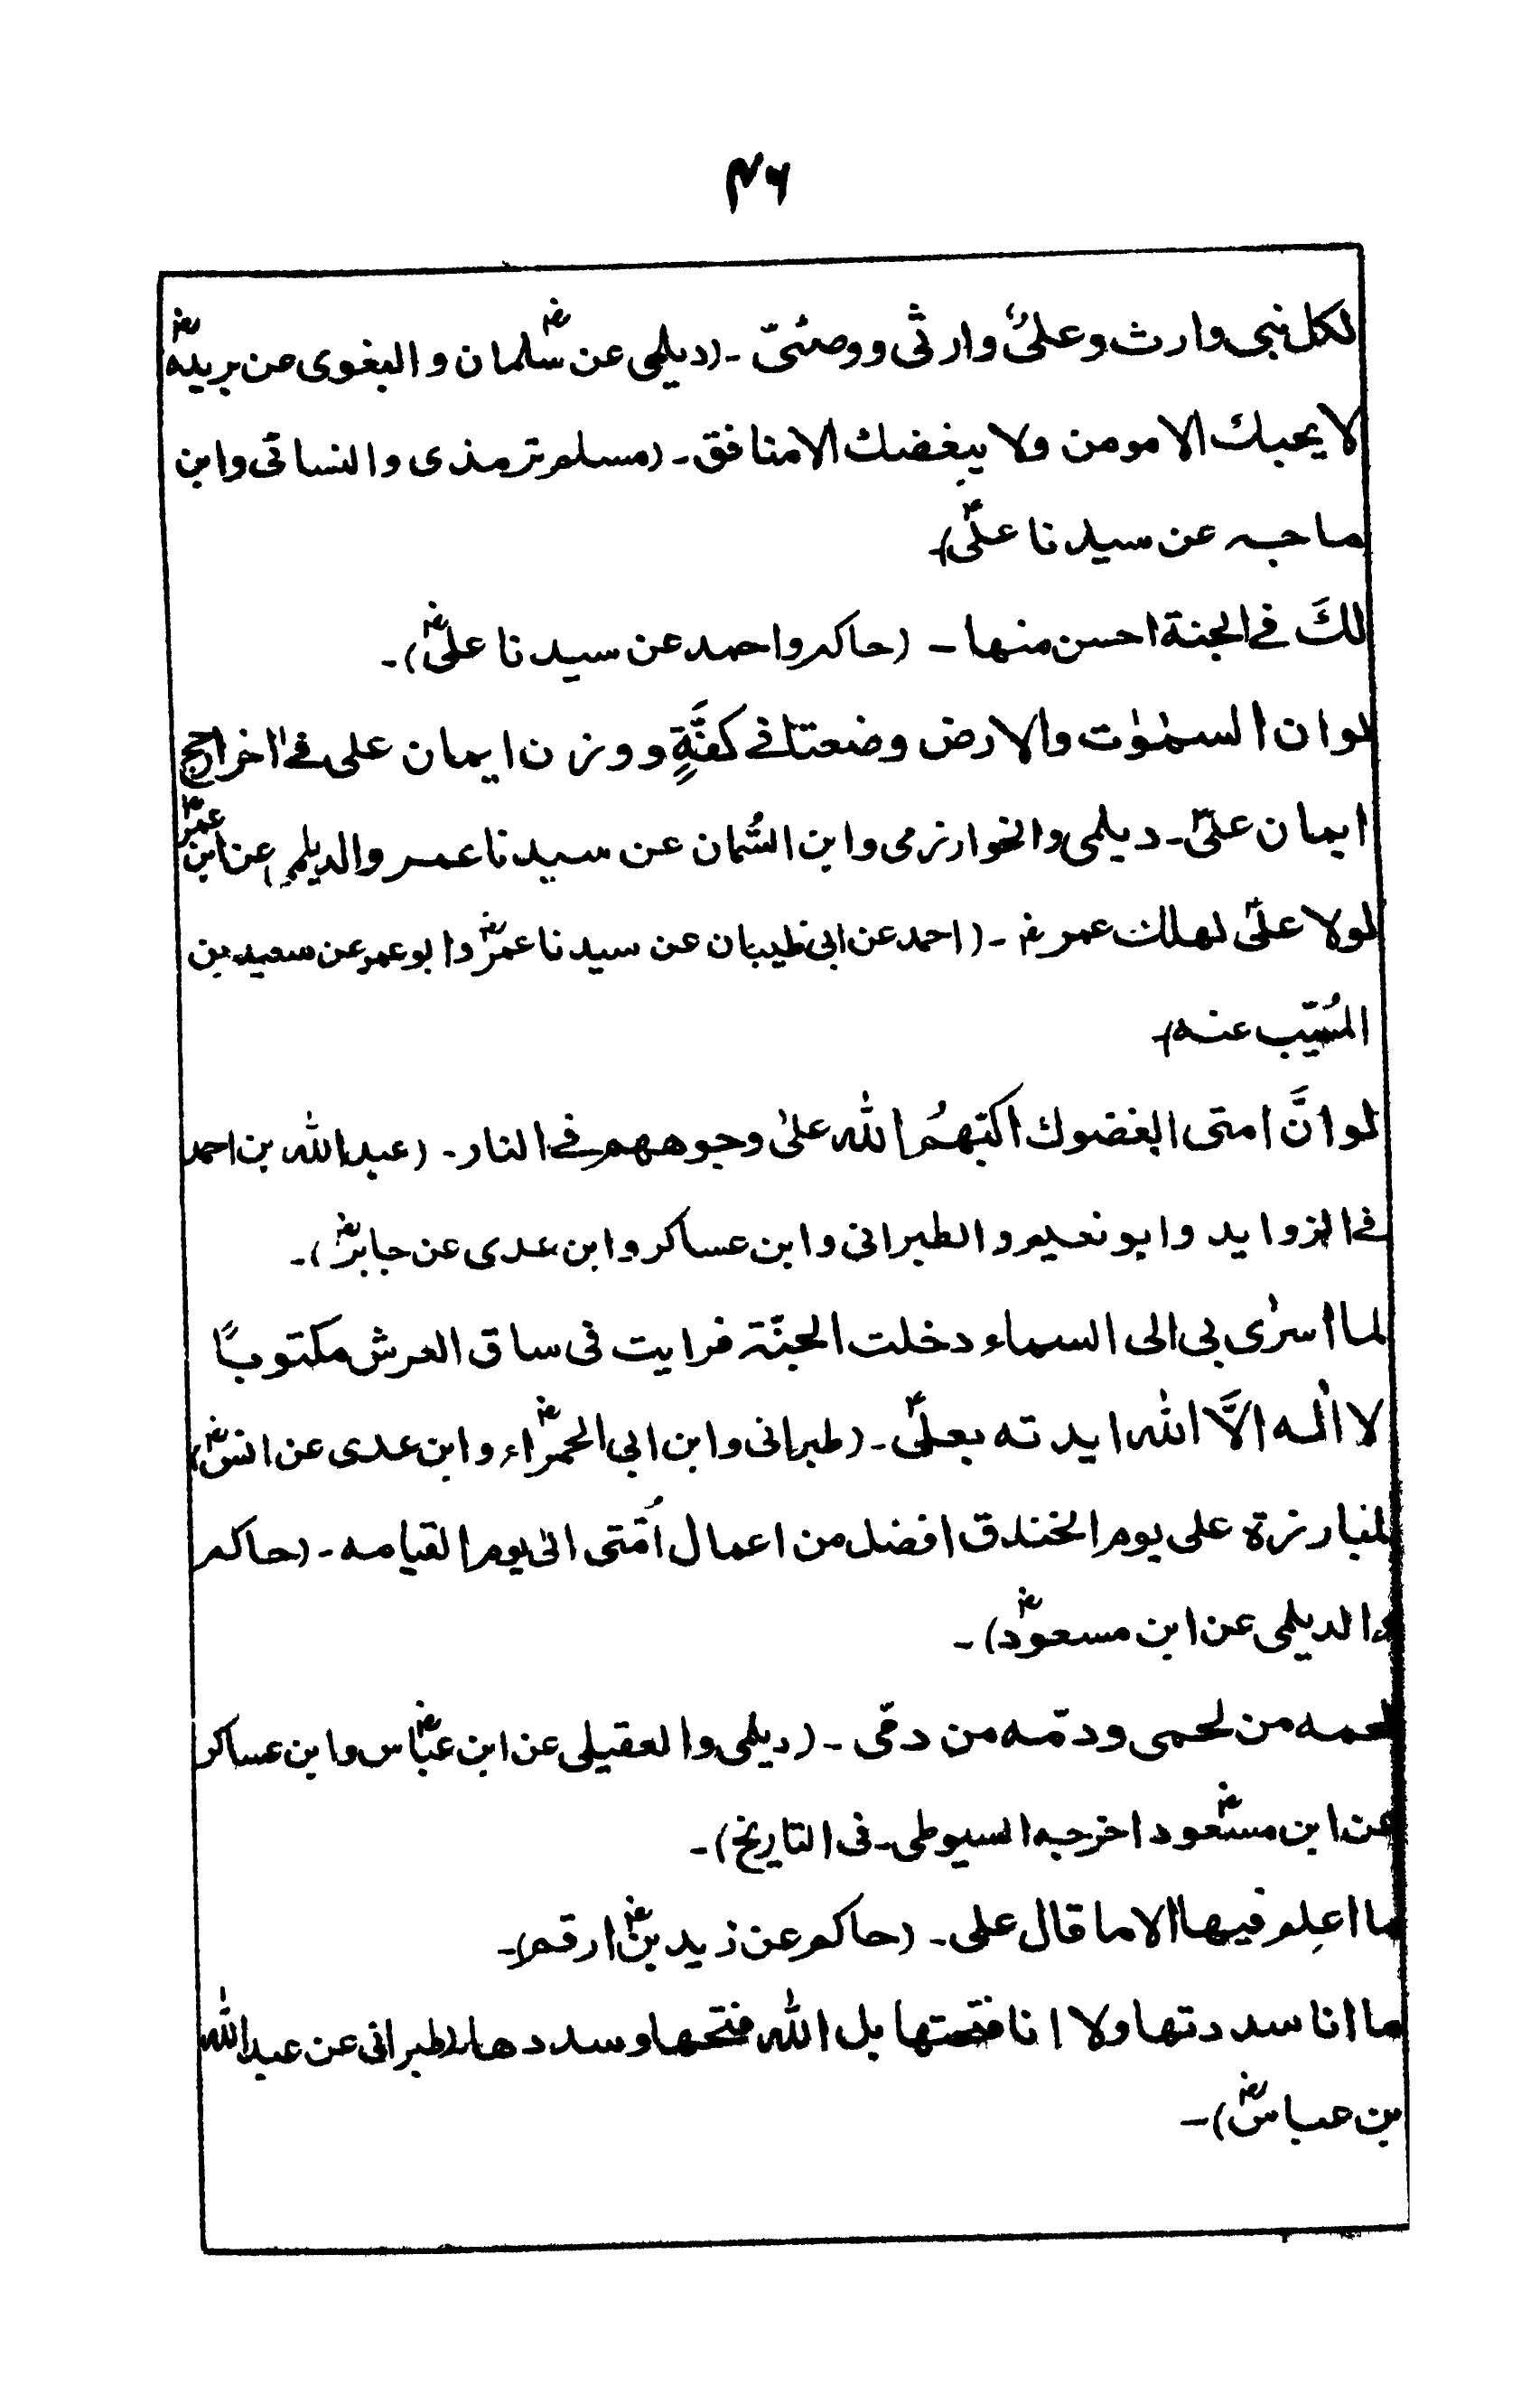 ۴۶
لكل نبى وارث وعلىٌ وارثى ووصئىّ ۔ (ديلمى عن سلمانؓ والبغوى عن بريدهؓ
لا يحبك الا مومن ولا يبغضك الا منافق ۔ (مسلم ترمذى والنسائى وابن
ماجه عن سيدنا علىؓ)۔
لكَ فے الجنة احسن منها ۔ (حاكم واحمد عن سيدنا علىؓ)۔
لو ان السمٰوٰت والارض وضعتا فے كفَّةٍ ووزن ايمان على فے اخراجح
ايمان علىؓ۔ ديلمى والخوارزمى وابن السُّمان عن سيدنا عمر والديلمى عن ابن عمرؓ
لولا علىؓ لهلك عمرؓ ۔ (احمد عن ابى ظبيان عن سيدنا عمرؓ وابو عمر عن سعيد بن
المُسَيّب عنه)۔
لو انَّ امتى ابغضوك اكبّهمُ الله علىٰ وجوههم فے النار۔ (عبدالله بن احمد
فے الزوايد وابو نعيم والطبرانى وابن عساكر وابن عدى عن جابرؓ)۔
لما اسرٰى بى الى السماء دخلت الجنّة فرايت فى ساق العرش مكتوبًا
لا الٰه الاَّ الله ايدته بعلىؓ۔ (طبرانى وابن ابى الحمراءؓ وابن عدى عن انسؓ)
لمبارزة على يوم الخندق افضل من اعمال اُمّتى الىٰ يوم القيامه۔ (حاكم
والديلمى عن ابن مسعودؓ)۔
لحمه من لحمى ودمّه من دمّى ۔ (ديلمى والعقيلى عن ابن عباسؓ وابن عساكر
عن ابن مسعودؓ اخرجه السيوطى۔ فى التاريخ)۔
ما اعلم فيها الا ما قال على۔ (حاكم عن زيد بنؓ ارقم)۔
ما انا سددتها ولا انا فتحتها بل الله فتحها وسددها (طبرانى عن عبدالله
بن عباسؓ)۔